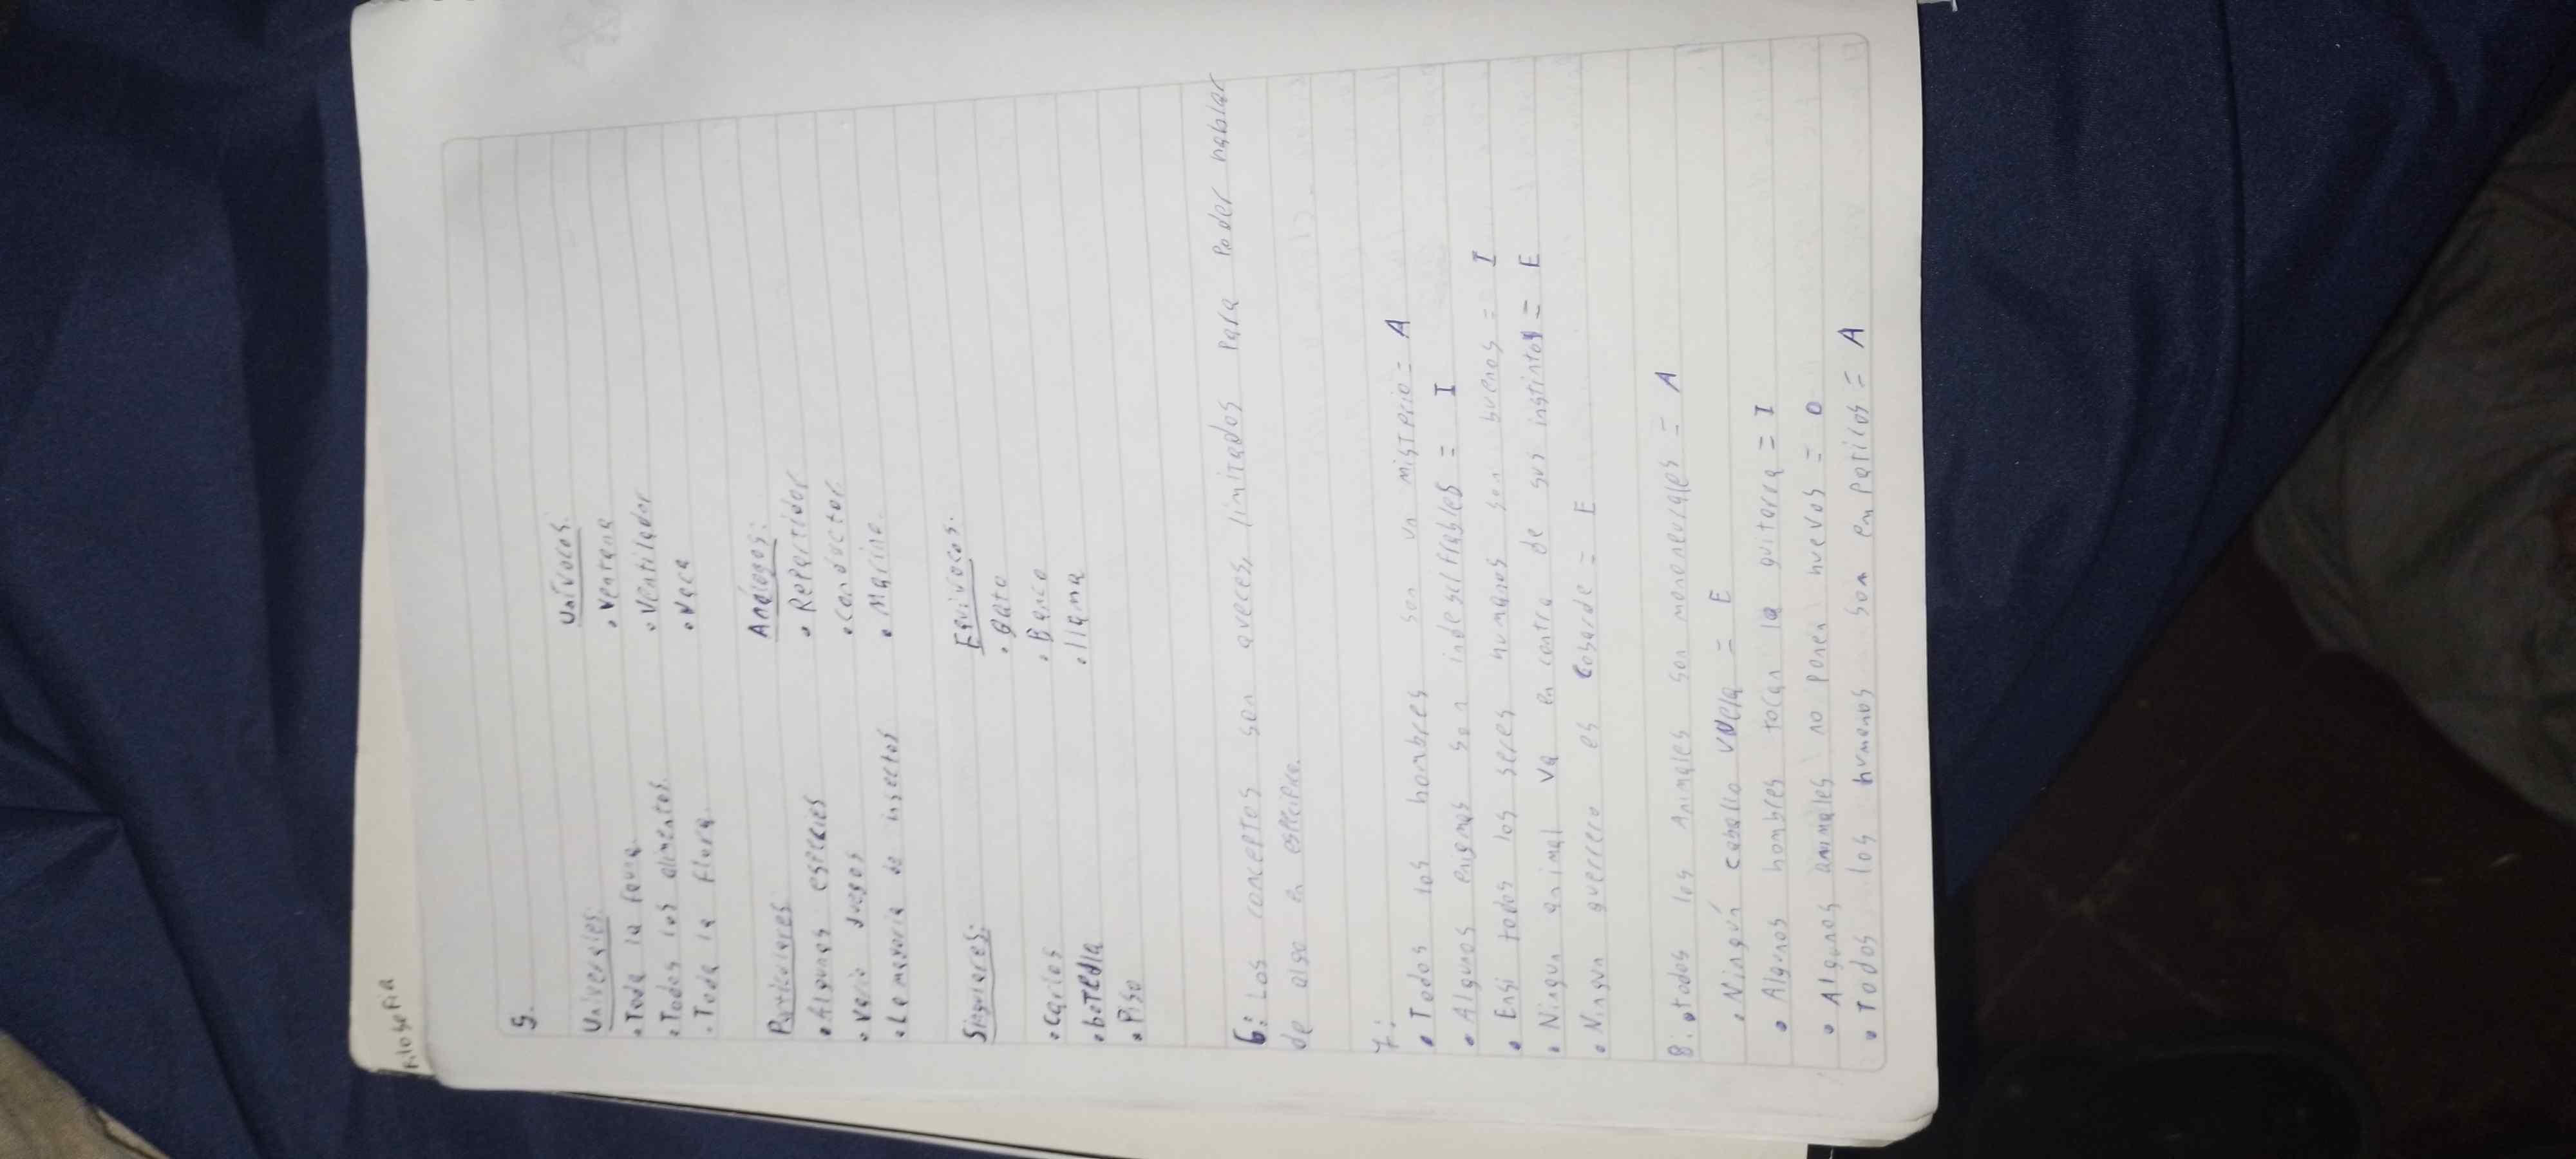 Filosofia
5.
Univerales:
• Toda la fauna.
• Todos los alimentos.
• Toda la flora.
Univocos:
• Ventana
• Ventilador
• Vaca
Particulares
• Algunas especies
• Vario juegos
• La mayoria de insectos
Análogos:
• Repartidor
• Conductor
• Marino.
Singurares:
• Carlos
• botella
• Piso
Equivocos:
• gato
• Banco
• llama
6: Los conceptos son aveces limitados para poder hablar
de algo en especifico.
7:
• Todos los hombres son un misterio = A
• Algunos enigmas son indescifrables = I
• todos los seres humanos son buenos = I
• Ningun animal va en contra de sus instintos = E
• Ningun guerrero es cobarde = E
8. • todos los Animales son moneurales = A
• Ningún caballo vuela = E
• Algunos hombres tocan la guitarra = I
• Algunos animales no ponen huevos = O
• Todos los humanos son empaticos = A